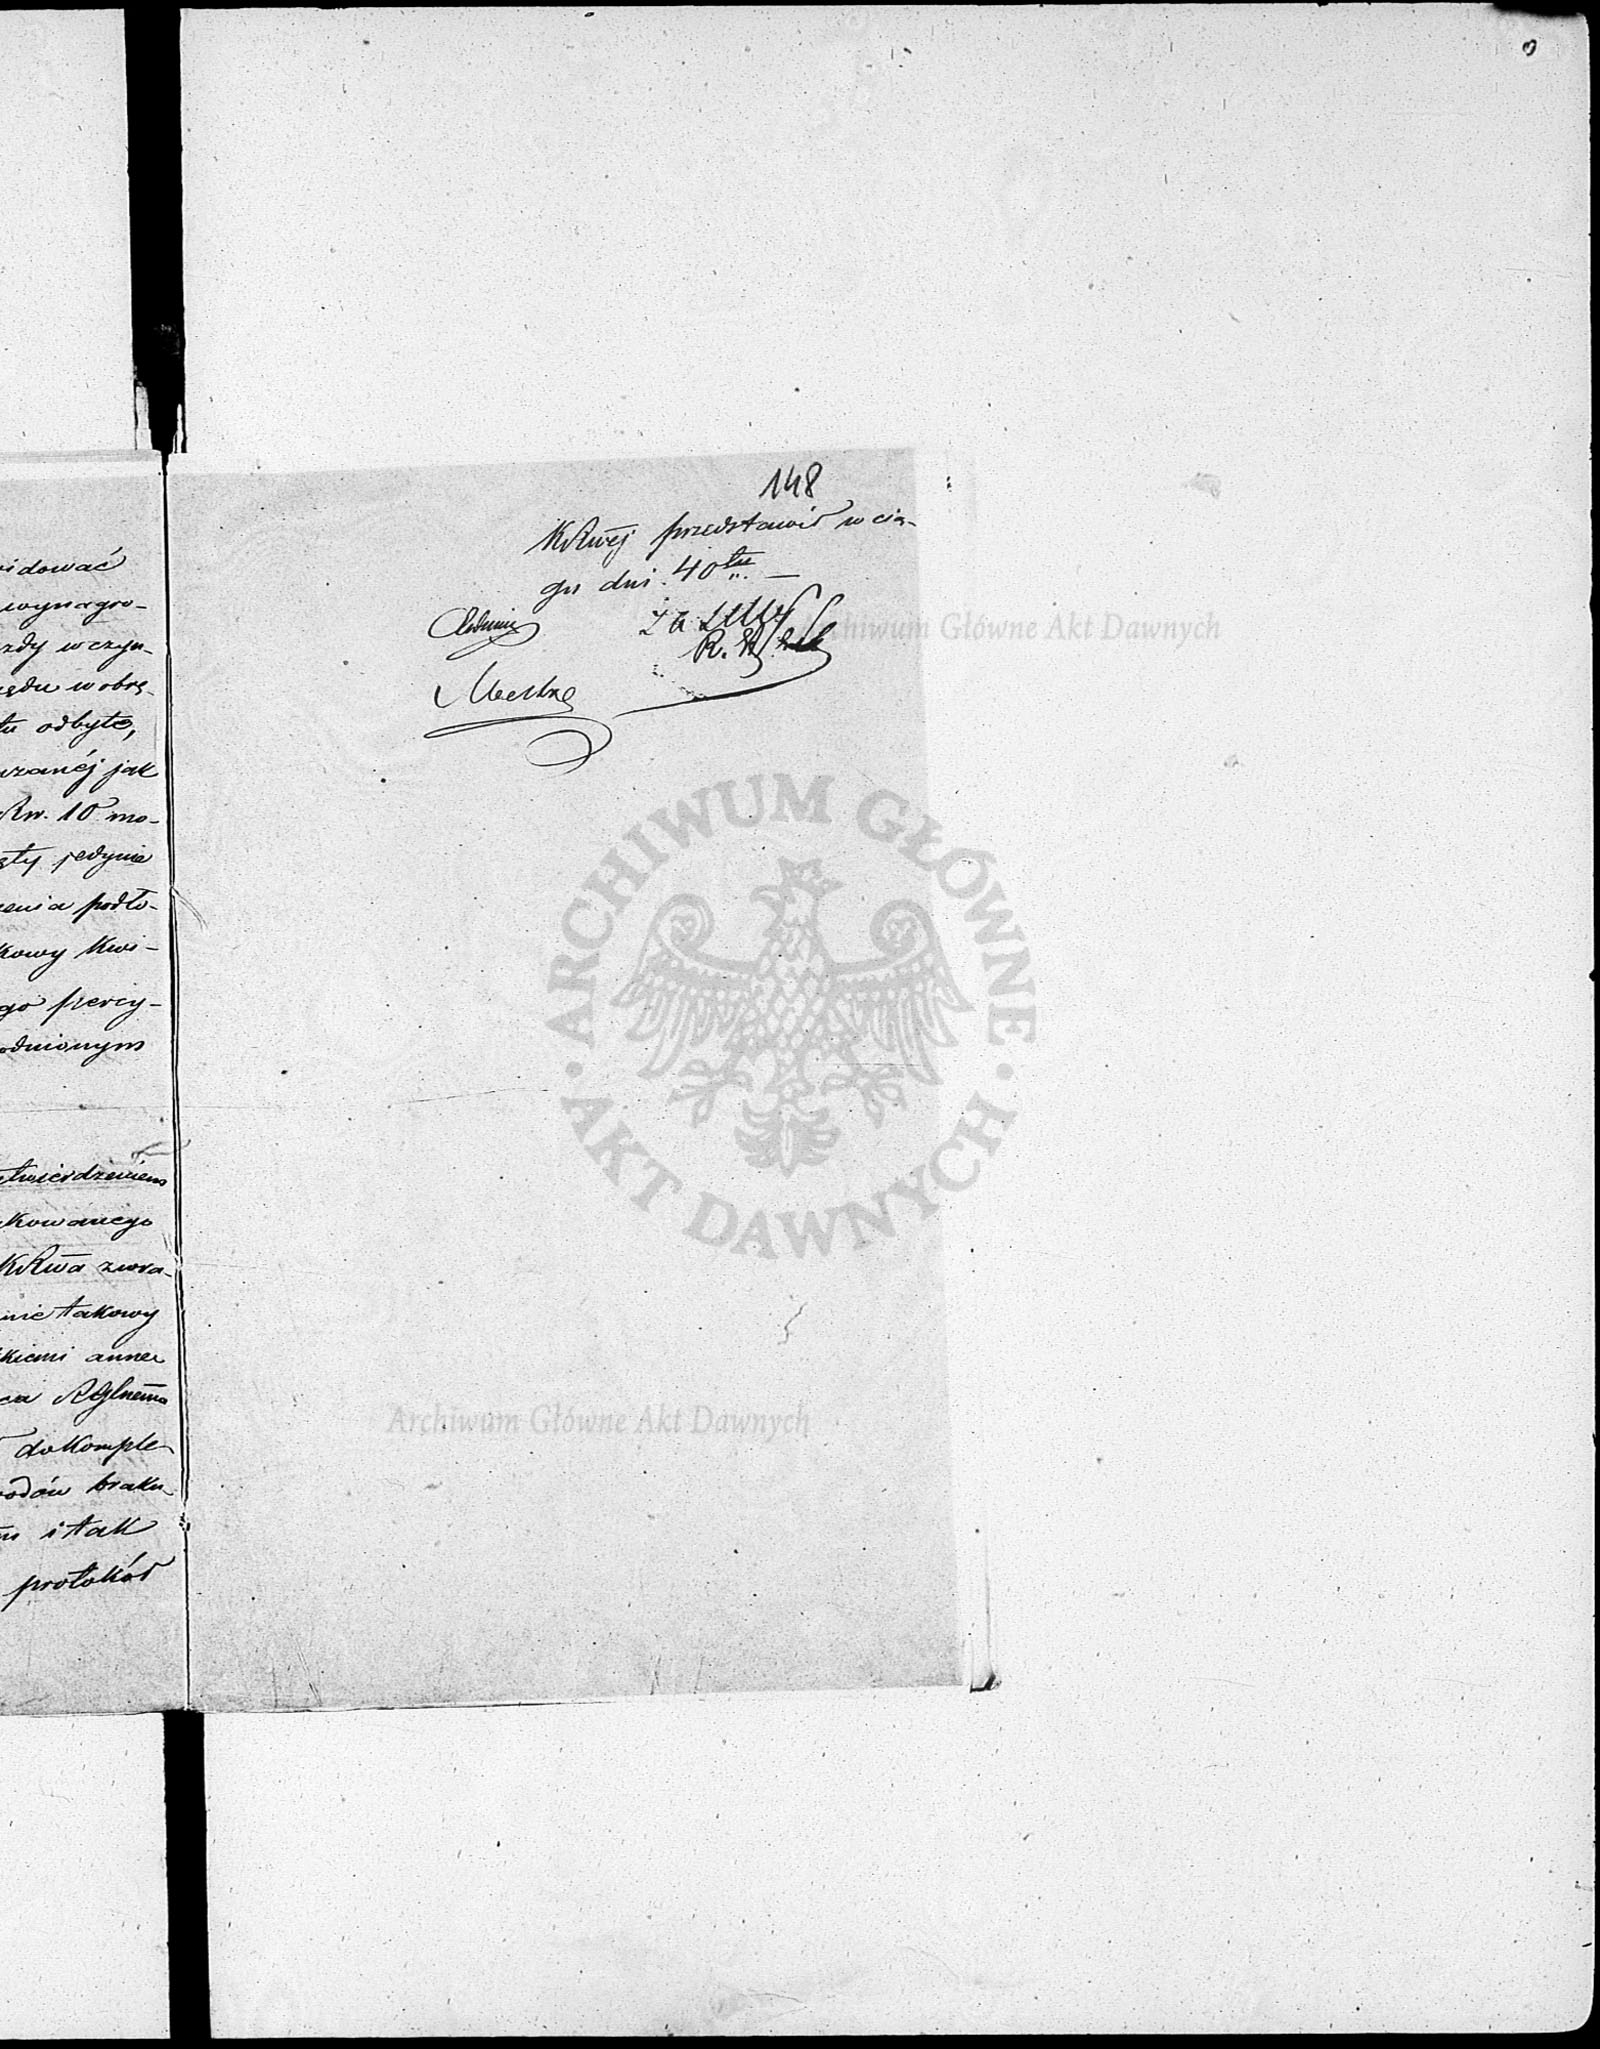 idować
wynagro-
zdy w czyn-
ędu w obrę-
tu odbyte,
zanéj jak
Rsr. 10 mo-
ty jedynie
enia podło-
kowy kwi-
go precy-
odnionym
twierdzeniem
kowanego
KRwa zwra-
nie takowy
kiemi annex
ca
do komple-
odów braku-
i tak
protokół
148
KRwéj przedstawił w cią-
gu dni 40tu
Za
R.
ARCHIWUM GŁÓWNE
AKT DAWNYCH
Archiwum Główne Akt Dawnych
Archiwum Główne Akt Dawnych